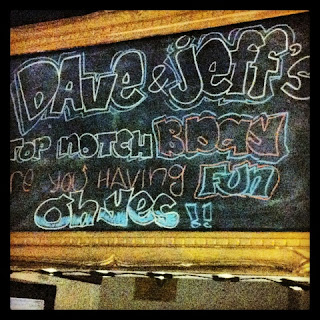 DAve & Jeff's
TOP MOTCH BDAy
you HAVING FUN
Oh yes !!